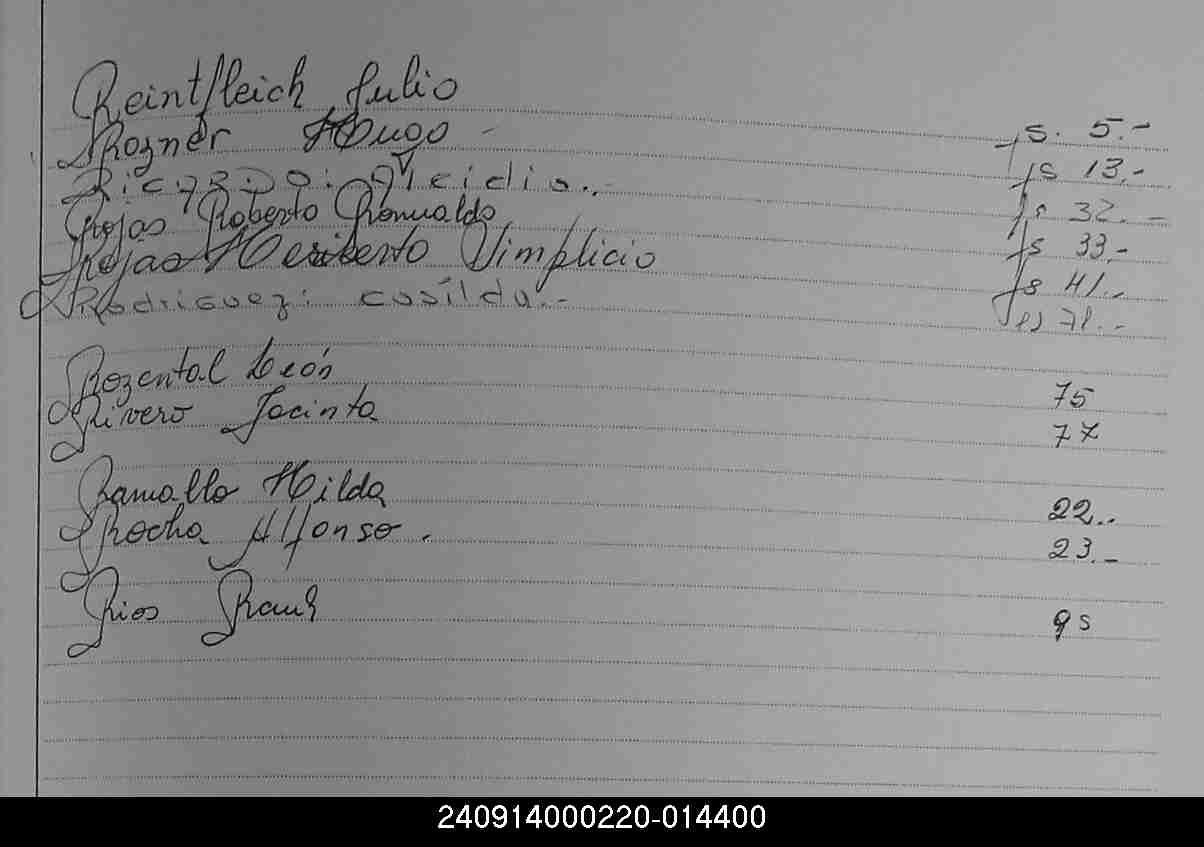 Reintfleich Julio fs. 5.-
Rozner Hugo - fs 13.-
Ricardo: Alcidis.- fs 32.-
Rojas Roberto Romualdo fs 33.-
Rojas Heriberto Simplicio fs 41.-
Rodriguez: casilda.- fs 71.-
Rozental León 75
Rivero Jacinta 77
Ramallo Hilda 22.-
Rocha Alfonso. 23.-
Rios Raul 95
240914000220-014400